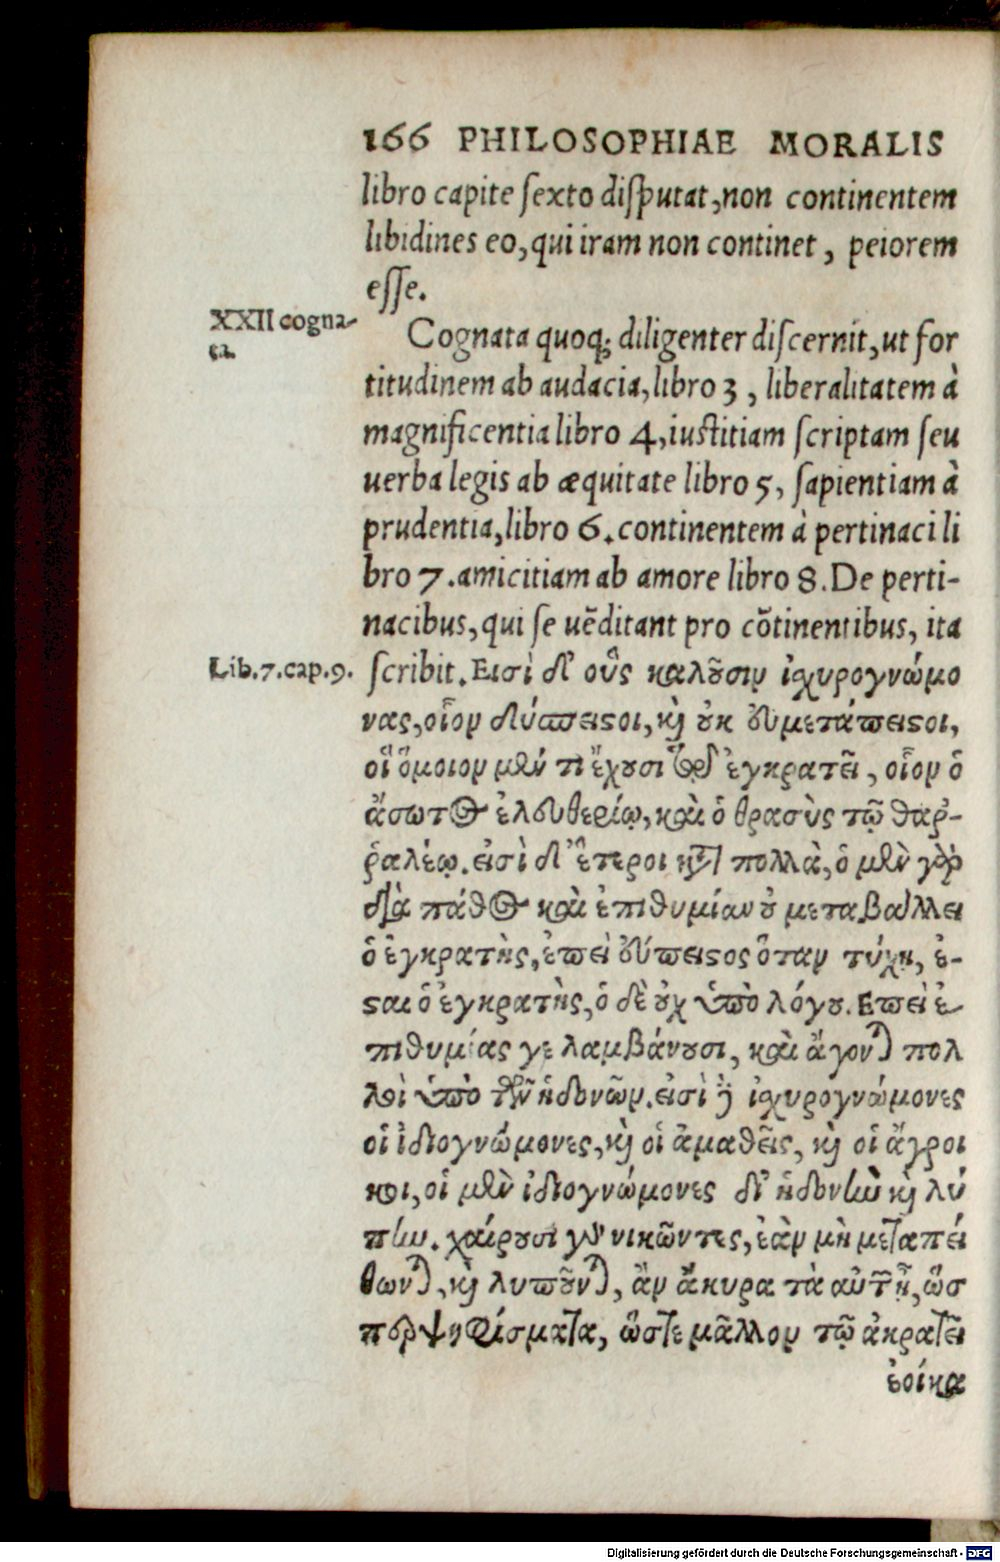 166 PHILOSOPHIAE MORALIS
libro capite sexto disputat, non continentem
libidines eo, qui iram non continet, peiorem
esse.
XXII cogna-
ta.
Cognata quoq; diligenter discernit, ut for
titudinem ab audacia, libro 3, liberalitatem à
magnificentia libro 4, iustitiam scriptam seu
uerba legis ab æquitate libro 5, sapientiam à
prudentia, libro 6. continentem à pertinaci li
bro 7. amicitiam ab amore libro 8. De perti-
nacibus, qui se uēditant pro cōtinentibus, ita
Lib. 7. cap. 9.
scribit. Εισὶ δ' οὓς καλοῦσιν ἰχυρογνώμο
νας, οἷον δύσπειστοι, καὶ οὐκ εὐμετάπειστοι,
οἳ ὅμοιον μέν τι ἔχουσι τῷ ἐγκρατεῖ, οἷον ὁ
ἄσωτος ἐλευθερίῳ, καὶ ὁ θρασὺς τῷ θαρ-
ῥαλέῳ. εἰσὶ δ' ἕτεροι κατὰ πολλὰ, ὁ μὲν γὰρ
διὰ πάθος καὶ ἐπιθυμίαν οὐ μεταβάλλει
ὁ ἐγκρατὴς, ἐπεὶ εὔπειστος ὅταν τύχῃ, ἐ-
σται ὁ ἐγκρατὴς, ὁ δὲ οὐχ ὑπὸ λόγου. Επεὶ ἐ
πιθυμίας γε λαμβάνουσι, καὶ ἄγονται πολ
λοὶ ὑπὸ τῶν ἡδονῶν. εἰσὶ δὲ ἰχυρογνώμονες
οἱ ἰδιογνώμονες, καὶ οἱ ἀμαθεῖς, καὶ οἱ ἄγροι
κοι, οἱ μὲν ἰδιογνώμονες δι' ἡδονὴν καὶ λύ
πην. χαίρουσι γὰρ νικῶντες, ἐὰν μὴ μεταπεί
θωνται, καὶ λυποῦνται, ἂν ἄκυρα τὰ αὐτῶν ᾖ, ὥσ
περ ψηφίσματα, ὥστε μᾶλλον τῷ ἀκρατεῖ
ἐοίκα
Digitalisierung gefördert durch die Deutsche Forschungsgemeinschaft - DFG